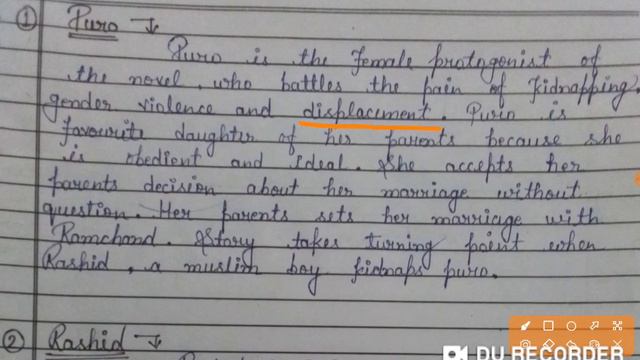 ① Puro →
Puro is the female protagonist of
the novel, who battles the pain of kidnapping,
gender violence and displacment. Puro is
favourite daughter of her parents because she
is obedient and ideal. She accepts her
parents decision about her marriage without
question. Her parents sets her marriage with
Ramchand. Story takes turning point when
Rashid, a muslim boy kidnaps puro.
② Rashid →
DU RECORDER